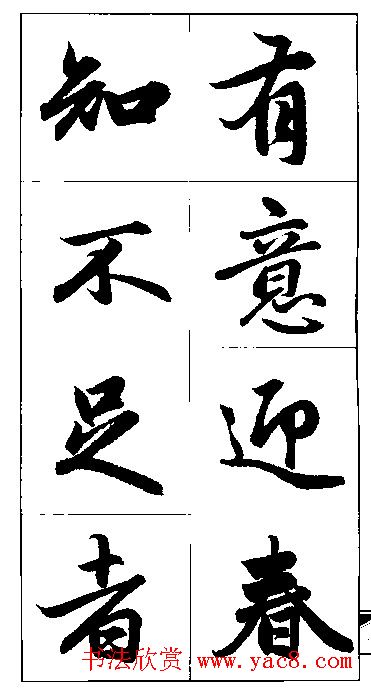 有意迎春
知不足者
书法欣赏 www.yac8.com